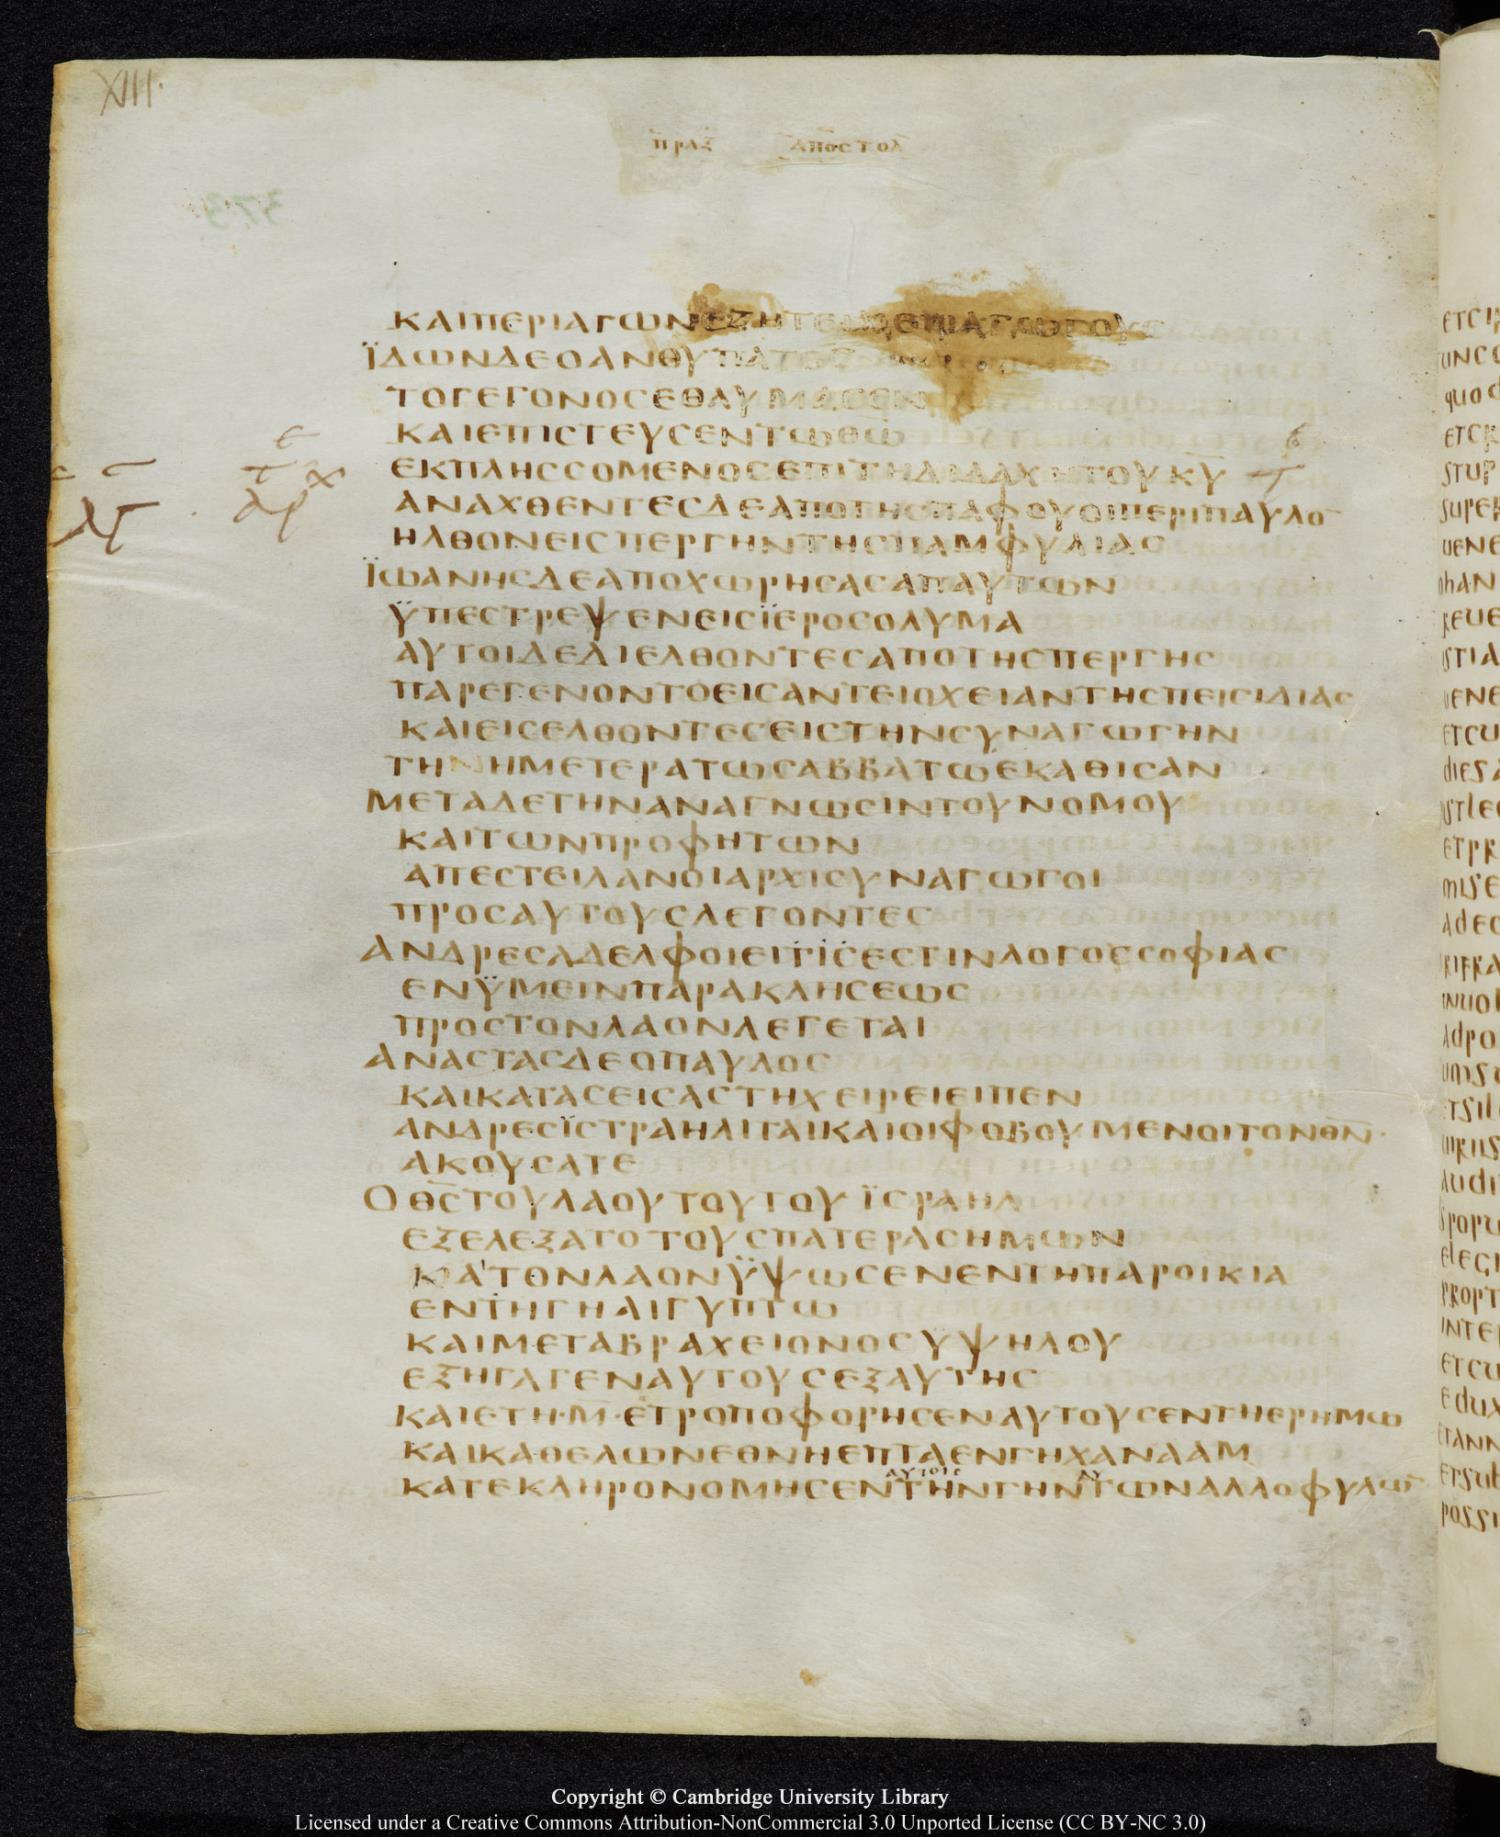 XIII.
ΠΡΑΞ ΑΠΟΣΤΟΛ
ΚΑΙΠΕΡΙΑΓΩΝΕΖΗΤΕΙΧΕΙΡΑΓΩΓΟΥΣ
ΪΔΩΝΔΕΟΑΝΘΥΠΑΤΟΣ
ΤΟΓΕΓΟΝΟΣΕΘΑΥΜΑΣΕΝ
ΚΑΙΕΠΙΣΤΕΥΣΕΝΤΩΘΩ
ΕΚΠΛΗΣΣΟΜΕΝΟΣΕΠΙΤΗΔΙΔΑΧΗΤΟΥΚΥ
ΑΝΑΧΘΕΝΤΕΣΔΕΑΠΟΤΗΣΠΑΦΟΥΟΙΠΕΡΙΠΑΥΛΟ
ΗΛΘΟΝΕΙΣΠΕΡΓΗΝΤΗΣΠΑΜΦΥΛΙΑΣ
ΪΩΑΝΗΣΔΕΑΠΟΧΩΡΗΣΑΣΑΠΑΥΤΩΝ
ΫΠΕΣΤΡΕΨΕΝΕΙΣΪΕΡΟΣΟΛΥΜΑ
ΑΥΤΟΙΔΕΔΙΕΛΘΟΝΤΕΣΑΠΟΤΗΣΠΕΡΓΗΣ
ΠΑΡΕΓΕΝΟΝΤΟΕΙΣΑΝΤΕΙΟΧΕΙΑΝΤΗΣΠΕΙΣΙΔΙΑΣ
ΚΑΙΕΙΣΕΛΘΟΝΤΕΣΕΙΣΤΗΝΣΥΝΑΓΩΓΗΝ
ΤΗΝΗΜΕΤΕΡΑΤΩΣΑΒΒΑΤΩΕΚΑΘΙΣΑΝ
ΜΕΤΑΔΕΤΗΝΑΝΑΓΝΩΣΙΝΤΟΥΝΟΜΟΥ
ΚΑΙΤΩΝΠΡΟΦΗΤΩΝ
ΑΠΕΣΤΕΙΛΑΝΟΙΑΡΧΙΣΥΝΑΓΩΓΟΙ
ΠΡΟΣΑΥΤΟΥΣΛΕΓΟΝΤΕΣ
ΑΝΔΡΕΣΑΔΕΛΦΟΙΕΙΤΙΣΕΣΤΙΝΛΟΓΟΣΣΟΦΙΑΣ
ΕΝΫΜΕΙΝΠΑΡΑΚΛΗΣΕΩΣ
ΠΡΟΣΤΟΝΛΑΟΝΛΕΓΕΤΑΙ
ΑΝΑΣΤΑΣΔΕΟΠΑΥΛΟΣ
ΚΑΙΚΑΤΑΣΕΙΣΑΣΤΗΧΕΙΡΕΙΕΙΠΕΝ
ΑΝΔΡΕΣΪΣΤΡΑΗΛΙΤΑΙΚΑΙΟΙΦΟΒΟΥΜΕΝΟΙΤΟΝΘΝ
ΑΚΟΥΣΑΤΕ
ΟΘΣΤΟΥΛΑΟΥΤΟΥΤΟΥΪΣΡΑΗΛ
ΕΞΕΛΕΞΑΤΟΤΟΥΣΠΑΤΕΡΑΣΗΜΩΝ
ΚΑΙΤΟΝΛΑΟΝΫΨΩΣΕΝΕΝΤΗΠΑΡΟΙΚΙΑ
ΕΝΤΗΓΗΑΙΓΥΠΤΩ
ΚΑΙΜΕΤΑΒΡΑΧΕΙΟΝΟΣΫΨΗΛΟΥ
ΕΞΗΓΑΓΕΝΑΥΤΟΥΣΕΞΑΥΤΗΣ
ΚΑΙΕΤΗ·Μ·ΕΤΡΟΠΟΦΟΡΗΣΕΝΑΥΤΟΥΣΕΝΤΗΕΡΗΜΩ
ΚΑΙΚΑΘΕΛΩΝΕΘΝΗΕΠΤΑΕΝΓΗΧΑΝΑΑΜ
ΑΥΤΟΙΣ
ΚΑΤΕΚΛΗΡΟΝΟΜΗΣΕΝΤΗΝΓΗΝΤΩΝΑΛΛΟΦΥΛΩ
Copyright © Cambridge University Library
Licensed under a Creative Commons Attribution-NonCommercial 3.0 Unported License (CC BY-NC 3.0)